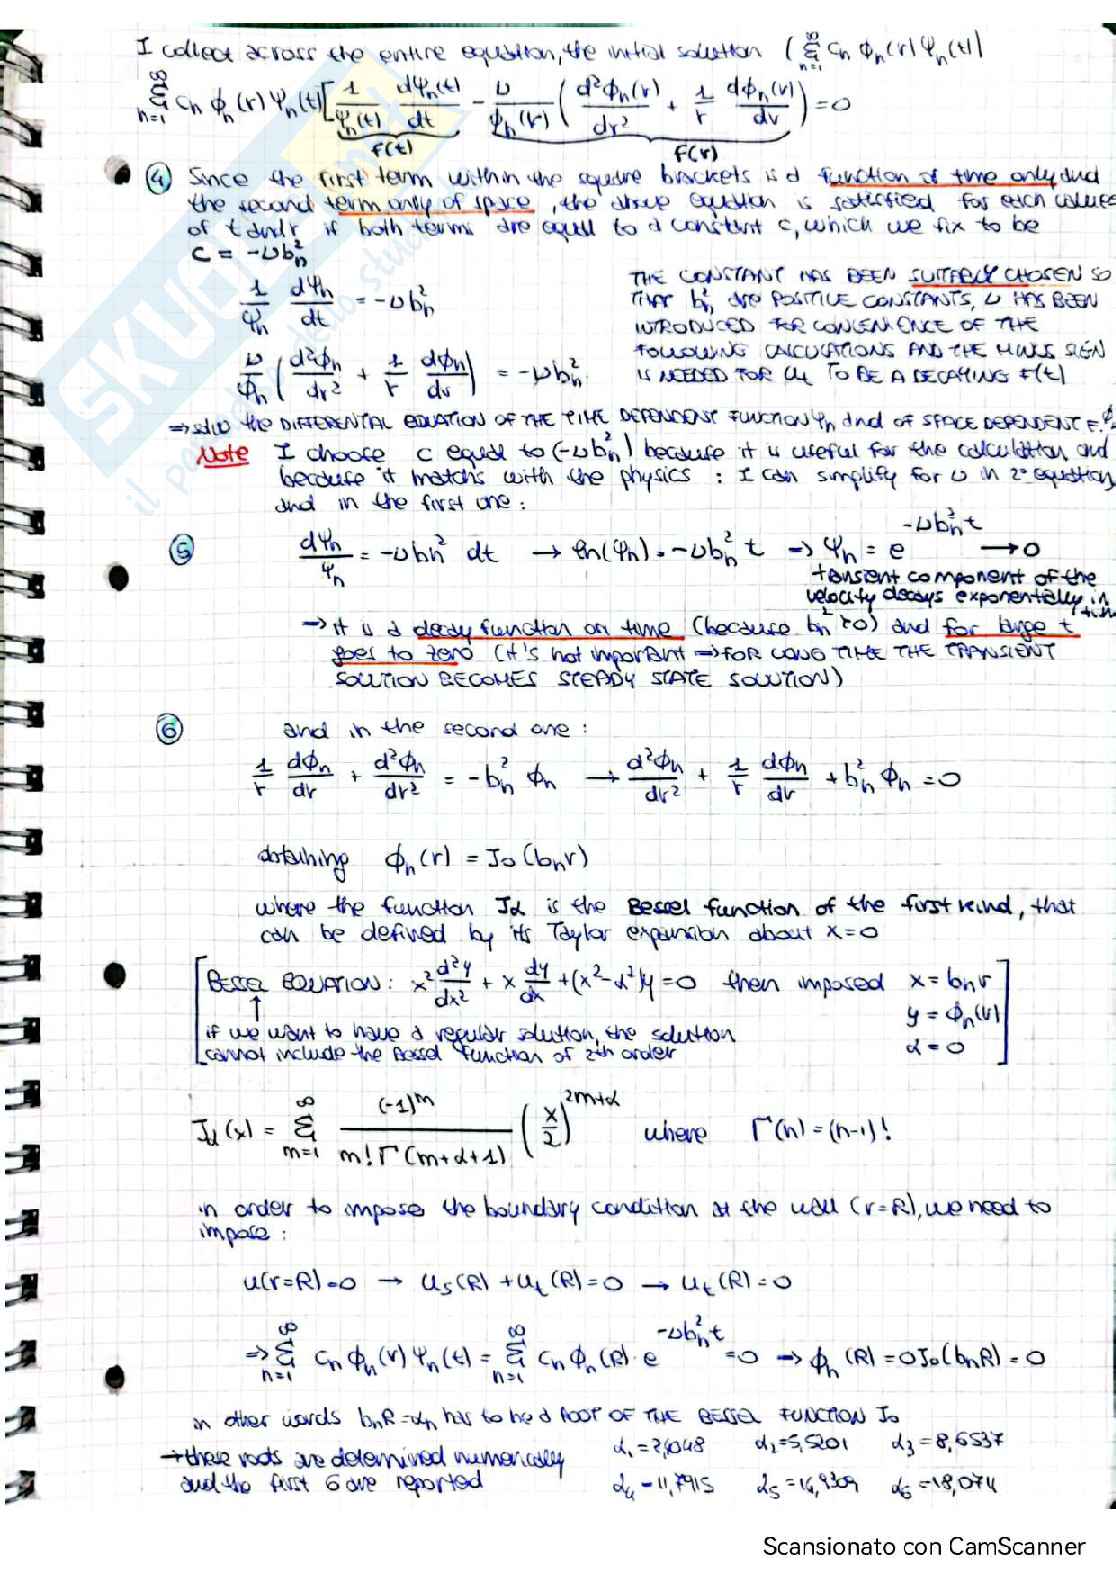 I collect across the entire equation, the initial solution (∞Σn=1 cn ϕn(r) Ψn(t)
∞Σn=1 cn ϕn(r) Ψn(t) [1/Ψn(t) dΨn(t)/dt - υ/ϕn(r) (d²ϕn(r)/dr² + 1/r dϕn(r)/dr)] = 0
F(t) F(r)
④ Since the first term within the square brackets is a function of time only and
the second term only of space, the above equation is satisfied for each values
of t and r if both terms are equal to a constant c, which we fix to be
c = -υbn²
1/Ψn dΨn/dt = -υbn²
υ/ϕn (d²ϕn/dr² + 1/r dϕn/dr) = -υbn²
THE CONSTANT HAS BEEN SUITABLY CHOSEN SO
THAT bn² ARE POSITIVE CONSTANTS, υ HAS BEEN
INTRODUCED FOR CONVENIENCE OF THE
FOLLOWING CALCULATIONS AND THE MINUS SIGN
IS NEEDED FOR ut TO BE A DECAYING F(t)
⇒ solve the DIFFERENTIAL EQUATION OF THE TIME DEPENDENT FUNCTION Ψn and of SPACE DEPENDENT F.
Note I choose c equal to (-υbn²) because it is useful for the calculation and
because it matchs with the physics : I can simplify for υ in 2° equation,
and in the first one :
⑤ dΨn/Ψn = -υbn² dt → ln(Ψn) = -υbn² t → Ψn = e^(-υbn² t) → 0
transient component of the
velocity decays exponentially in time
→ it is a decay function on time (because bn² > 0) and for large t
goes to zero (it's not important → FOR LONG TIME THE TRANSIENT
SOLUTION BECOMES STEADY STATE SOLUTION)
⑥ and in the second one :
1/r dϕn/dr + d²ϕn/dr² = -bn² ϕn → d²ϕn/dr² + 1/r dϕn/dr + bn² ϕn = 0
obtaining ϕn(r) = J0(bnr)
where the function Jα is the Bessel function of the first kind, that
can be defined by its Taylor expansion about x=0
[BESSEL EQUATION : x² d²y/dx² + x dy/dx + (x²-α²)y = 0 then imposed x = bnr
y = ϕn(r)
α = 0]
if we want to have a regular solution, the solution
cannot include the Bessel function of 2th order
Jα(x) = ∞Σm=1 (-1)^m / m! Γ(m+α+1) (x/2)^(2m+α) where Γ(n) = (n-1)!
in order to impose the boundary condition at the wall (r=R), we need to
impose :
u(r=R)=0 → us(R) + ut(R) = 0 → ut(R) = 0
⇒ ∞Σn=1 cn ϕn(r) Ψn(t) = ∞Σn=1 cn ϕn(R) · e^(-υbn² t) = 0 → ϕn(R) = 0 J0(bnR) = 0
in other words bnR = αn has to be a ROOT OF THE BESSEL FUNCTION J0
→ these roots are determined numerically α1 = 2,4048 α2 = 5,5201 α3 = 8,6537
and the first 6 are reported α4 = 11,7915 α5 = 14,9309 α6 = 18,071
Scansionato con CamScanner